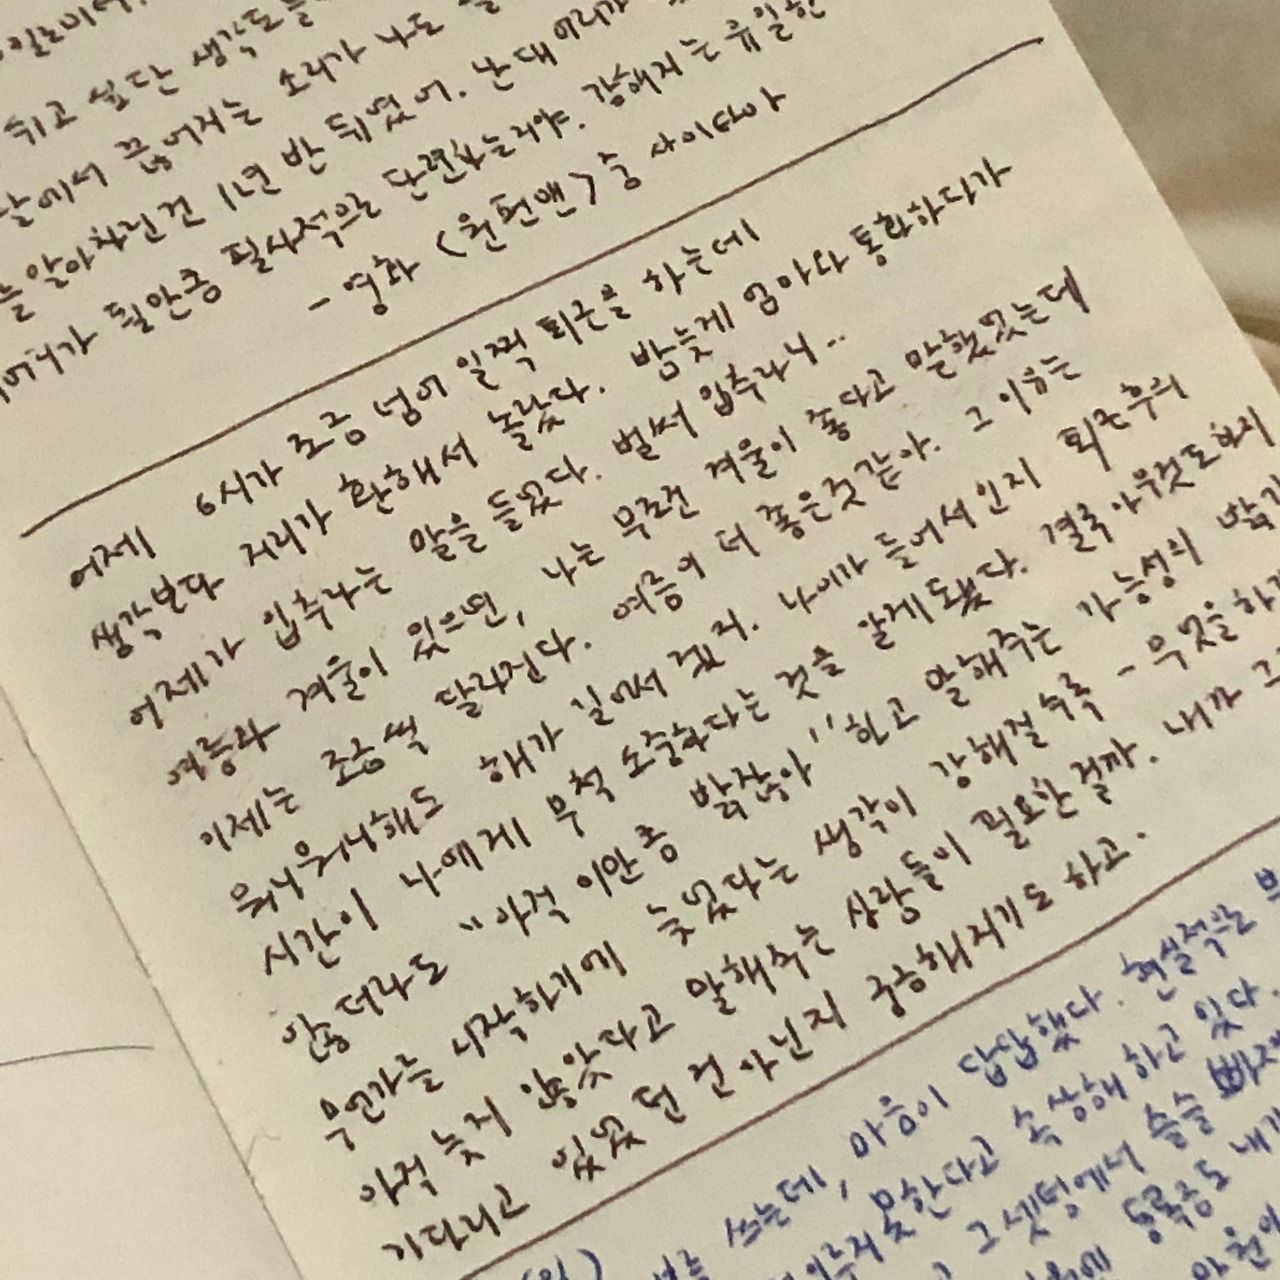 쉬고 싶단 생각도
에서 끊어지는 소리가 나도
알아차린건 1년 반 뒤였어. 난 대
가 될만큼 필사적으로 단련하는거야. 강해지는 유일한
- 영화 <원펀맨> 중 사이타마
어제 6시가 조금 넘어 일찍 퇴근을 하는데
생각보다 거리가 환해서 놀랐다. 밤늦게 엄마와 통화하다가
어제가 입추라는 말을 들었다. 벌써 입추라니..
여름과 겨울이 있으면, 나는 무조건 겨울이 좋다고 말했었는데
이제는 조금씩 달라진다. 여름이 더 좋은것 같아. 그 이유는
뭐니뭐니해도 해가 길어서 겠지. 나이가 들어서인지 퇴근후의
시간이 나에게 무척 소중하다는 것을 알게 됐다. 결국 아무것도 하지
않더라도 "아직 이만큼 밝잖아" 하고 말해주는 가능성의
무언가를 시작하기에 늦었다는 생각이 강해질수록 - 무엇을 하
아직 늦지 않았다고 말해주는 사람들이 필요한걸까. 내가 그
기다리고 있었던 건 아닌지 궁금해지기도 하고.
쓰는데, 마음이 답답했다. 현실적으로
못한다고 속상해 하고 있다.
그 셋팅에서 슬슬 빠져
등록증도 내